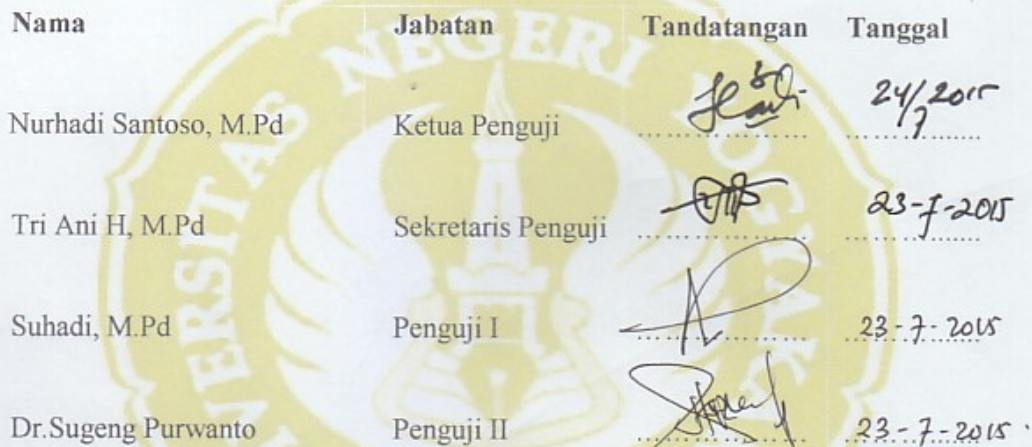 Nama Jabatan Tandatangan Tanggal
Nurhadi Santoso, M.Pd Ketua Penguji 24/7 2015
Tri Ani H, M.Pd Sekretaris Penguji 23-7-2015
Suhadi, M.Pd Penguji I 23-7-2015
Dr.Sugeng Purwanto Penguji II 23-7-2015